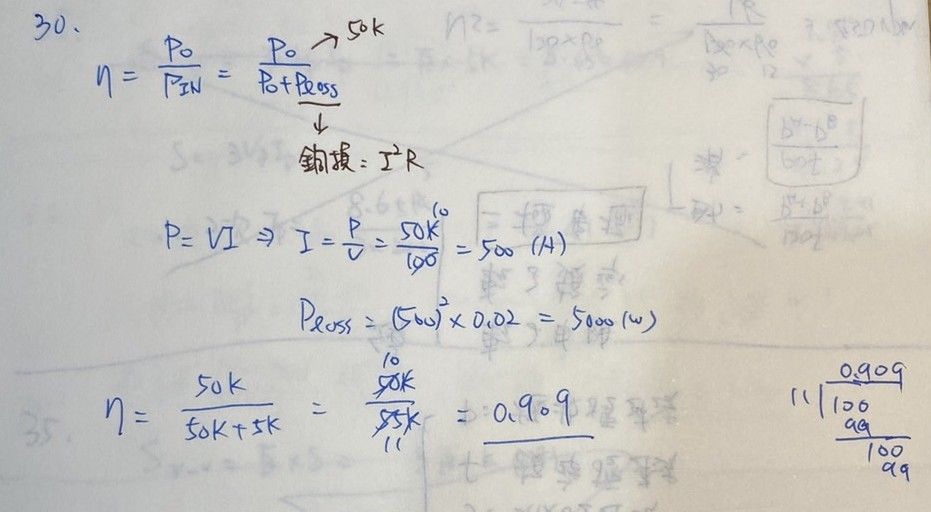 30.
η = Po/PIN = Po/(Po+Ploss) → 50K
↓
銅損 = I²R
P = VI ⇒ I = P/V = 50K/100 = 500 (A)
10
Ploss = (500)² × 0.02 = 5000 (W)
η = 50K/(50K+5K) = 50K/55K = 0.909
10
11
0.909
11 100
99
100
99